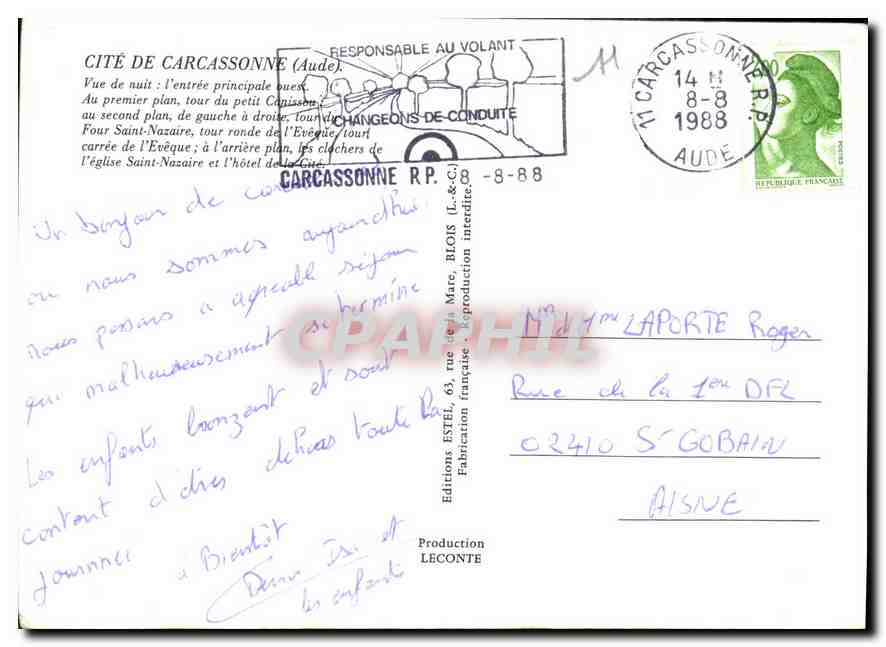 CITÉ DE CARCASSONNE (Aude).
Vue de nuit : l'entrée principale ouest.
Au premier plan, tour du petit Canissou ;
au second plan, de gauche à droite, tour du
Four Saint-Nazaire, tour ronde de l'Evêque, tour
carrée de l'Evêque ; à l'arrière plan, les clochers de
l'église Saint-Nazaire et l'hôtel de la Cité.
RESPONSABLE AU VOLANT
CHANGEONS DE CONDUITE
CARCASSONNE R P. 8 -8-88
11
11 CARCASSONNE R.P.
14 H
8-8
1988
AUDE
REPUBLIQUE FRANÇAISE
POSTES
Un bonjour de
ou nous sommes aujourdhui.
nous passons a agreable séjour
qui malheureusement se termine
Les enfants bronzent et sont
content d'etres dehors toute la
journnee
a Bientôt
Isa et
les enfants
Editions ESTEL, 63, rue de la Mare, BLOIS (L.-&-C.)
Fabrication française - Reproduction interdite.
Production
LECONTE
CPAPHIL
Mr et Mme LAPORTE Roger
Rue de la 1ere DFL
02410 St GOBAIN
AISNE